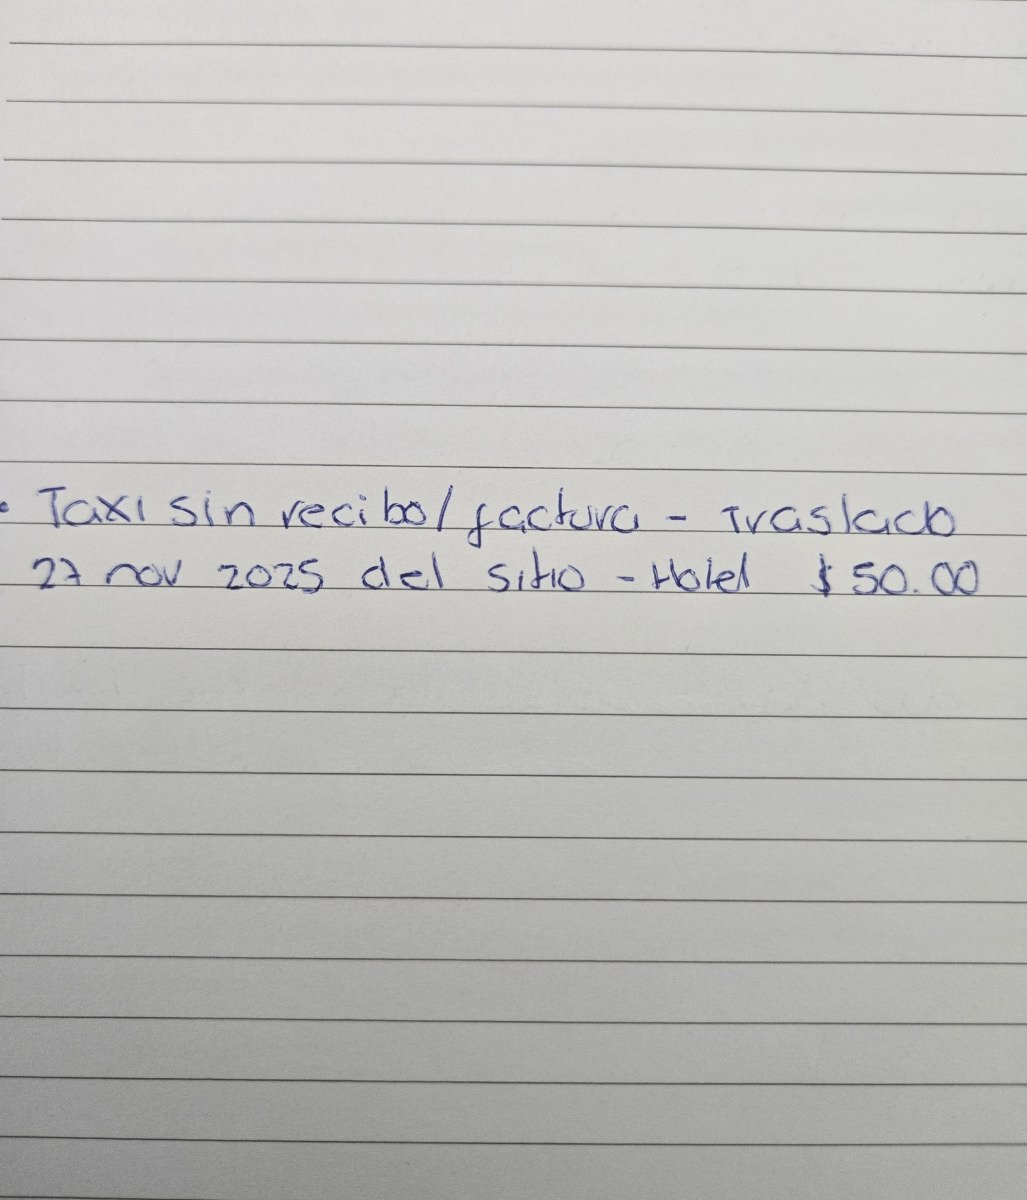 • Taxi sin recibo/factura - Traslado
27 nov 2025 del sitio - Hotel $50.00